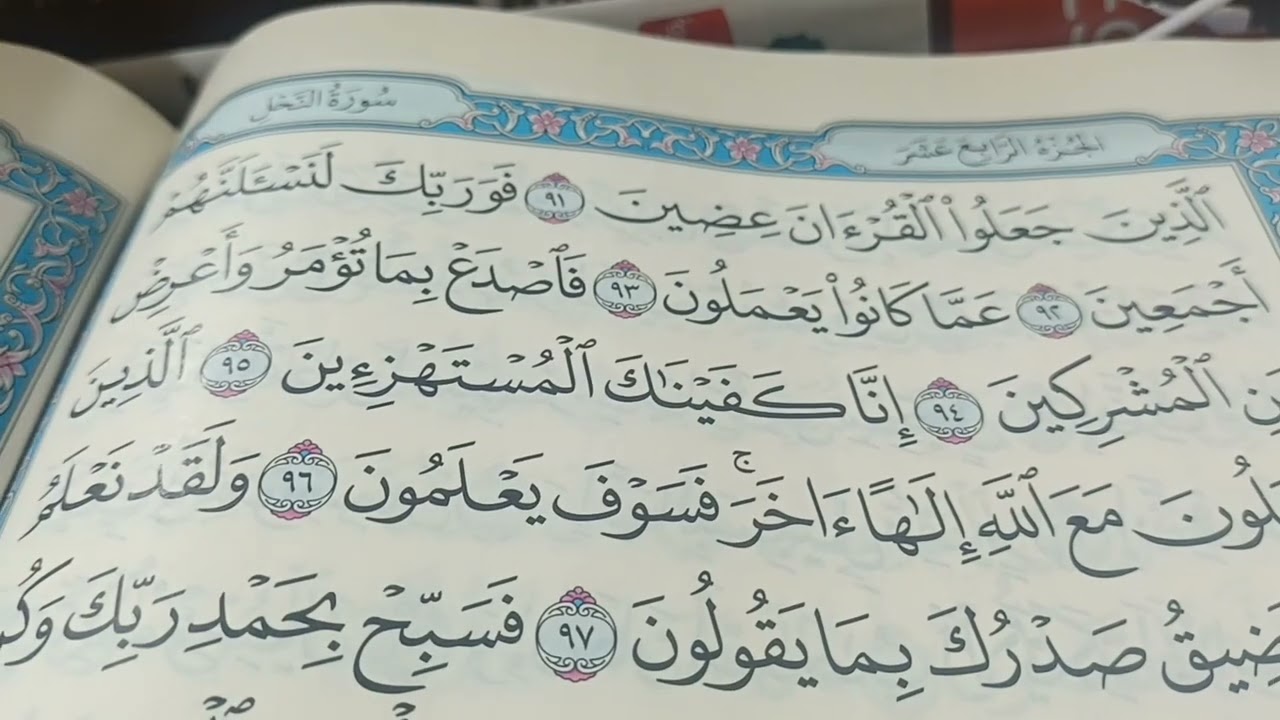 الجزء الرابع عشر
سورة النحل
ٱلَّذِينَ جَعَلُوا۟ ٱلْقُرْءَانَ عِضِينَ ٩١ فَوَرَبِّكَ لَنَسْـَٔلَنَّهُمْ
أَجْمَعِينَ ٩٢ عَمَّا كَانُوا۟ يَعْمَلُونَ ٩٣ فَٱصْدَعْ بِمَا تُؤْمَرُ وَأَعْرِضْ
ٱلْمُشْرِكِينَ ٩٤ إِنَّا كَفَيْنَـٰكَ ٱلْمُسْتَهْزِءِينَ ٩٥ ٱلَّذِينَ
مَعَ ٱللَّهِ إِلَـٰهًا ءَاخَرَ ۚ فَسَوْفَ يَعْلَمُونَ ٩٦ وَلَقَدْ نَعْلَمُ
صَدْرُكَ بِمَا يَقُولُونَ ٩٧ فَسَبِّحْ بِحَمْدِ رَبِّكَ